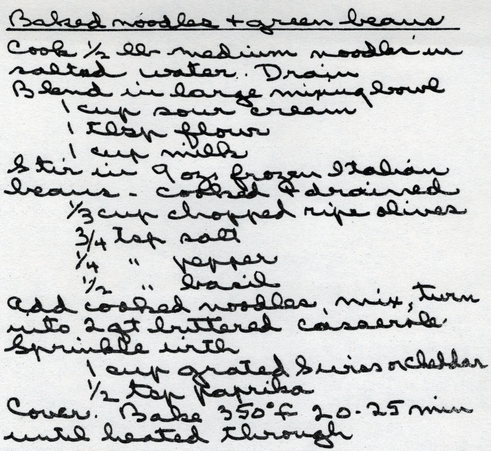 Baked noodles + green beans
Cook 1/2 lb medium noodles in
salted water. Drain
Blend in large mixing bowl
1 cup sour cream
1 tbsp flour
1 cup milk
Stir in 9 oz. frozen Italian
beans - cooked & drained
1/3 cup chopped ripe olives
3/4 tsp salt
1/4 " pepper
1/2 " basil
Add cooked noodles, mix, turn
into 2 qt buttered casserole
Sprinkle with
1 cup grated Swiss or cheddar
1/2 tsp paprika
Cover. Bake 350°F 20-25 min
until heated through